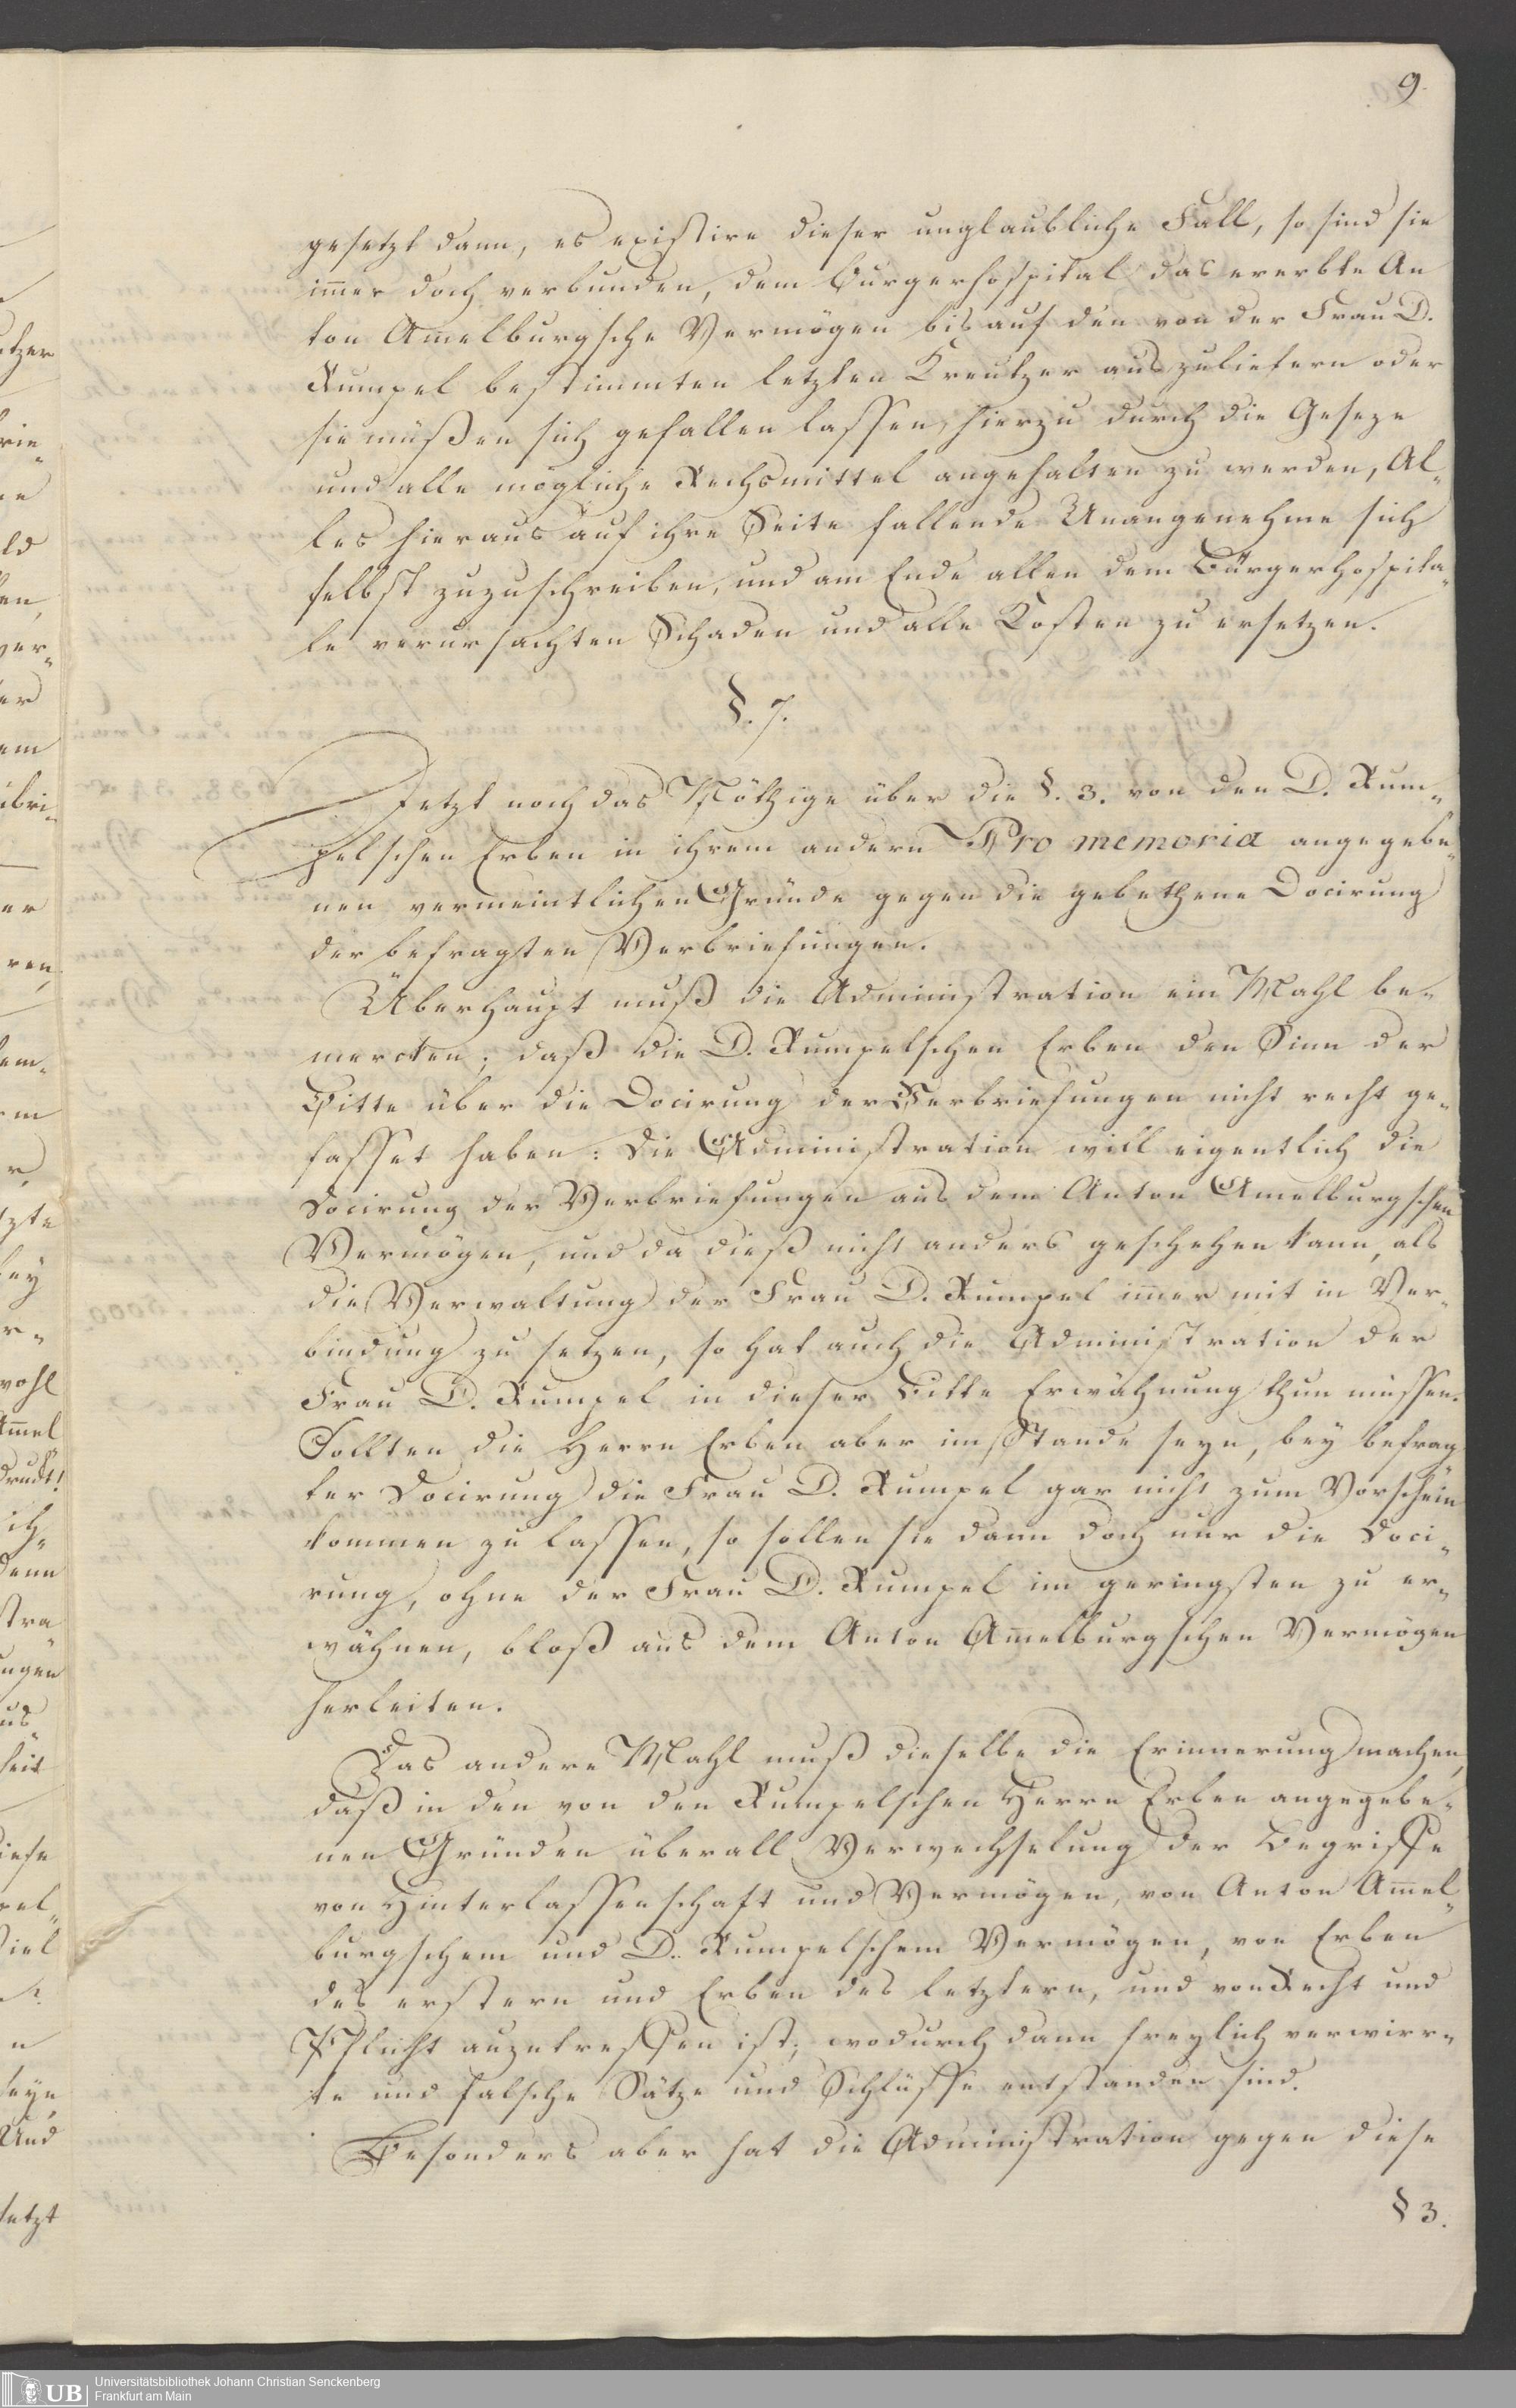 9.
gesetzt dann, es existire dieser unglaubliche Fall, so sind sie
im̅er doch verbunden, dem Burgerhospital das ererbte An
ton Am̅elburgsche Vermögen bis auf den von der Frau D.
Rumpel bestimmten letzten Kreutzer auszuliefern oder
sie müßen sich gefallen lassen, hierzu durch die Geseze
und alle mögliche Rechsmittel angehalten zu werden, Al„
les hieraus auf ihre Seite fallende Unangenehme sich
selbst zuzuschreiben, und am Ende allen dem Bürgerhospita„
le verursachten Schaden und alle Kosten zu ersetzen.
§. 7.
Jetzt noch das Nöthige über die §. 3. von den D. Rum„
pelschen Erben in ihrem andern Pro memoria angegebe„
nen vermeintlichen Gründe gegen die gebethene Docirung
der befragten Verbriefungen.
Überhaupt muß die Administration ein Mahl be„
mercken; daß die D. Rumpelschen Erben den Sinn der
Bitte über die Docirung der Verbriefungen nicht recht ge„
fasset haben: Die Administration will eigentlich die
Docirung der Verbriefungen aus dem Anton Am̅elburgschen
Vermögen, und da dieß nicht anders geschehen kann, als
die Verwaltung der Frau D. Rumpel im̅er mit in Ver„
bindung zu setzen, so hat auch die Administration der
Frau D. Rumpel in dieser Bitte Erwähnung thun müssen.
Sollten die Herrn Erben aber im Stande seyn, bey befrag
ter Docirung die Frau D. Rumpel gar nicht zum Vorschein
kommen zu lassen, so sollen sie dann doch nur die Doci„
rung, ohne der Frau D. Rumpel im geringsten zu er„
wähnen, bloß aus dem Anton Am̅elburgschen Vermögen
herleiten.
Das andere Mahl muß dieselbe die Erinnerung machen,
daß in den von den Rumpelschen Herrn Erben angegebe„
nen Gründen überall Verwechselung der Begriffe
von Hinterlassenschaft und Vermögen, von Anton Am̅el„
burgschem und D. Rumpelschem Vermögen, von Erben
des erstern und Erben des letztern, und von Recht und
Pflicht anzutreffen ist; wodurch dann freylich verwirr„
te und falsche Sätze und Schlüsse entstanden sind.
Besonders aber hat die Administration gegen diese
§ 3.
UB
Universitätsbibliothek Johann Christian Senckenberg
Frankfurt am Main